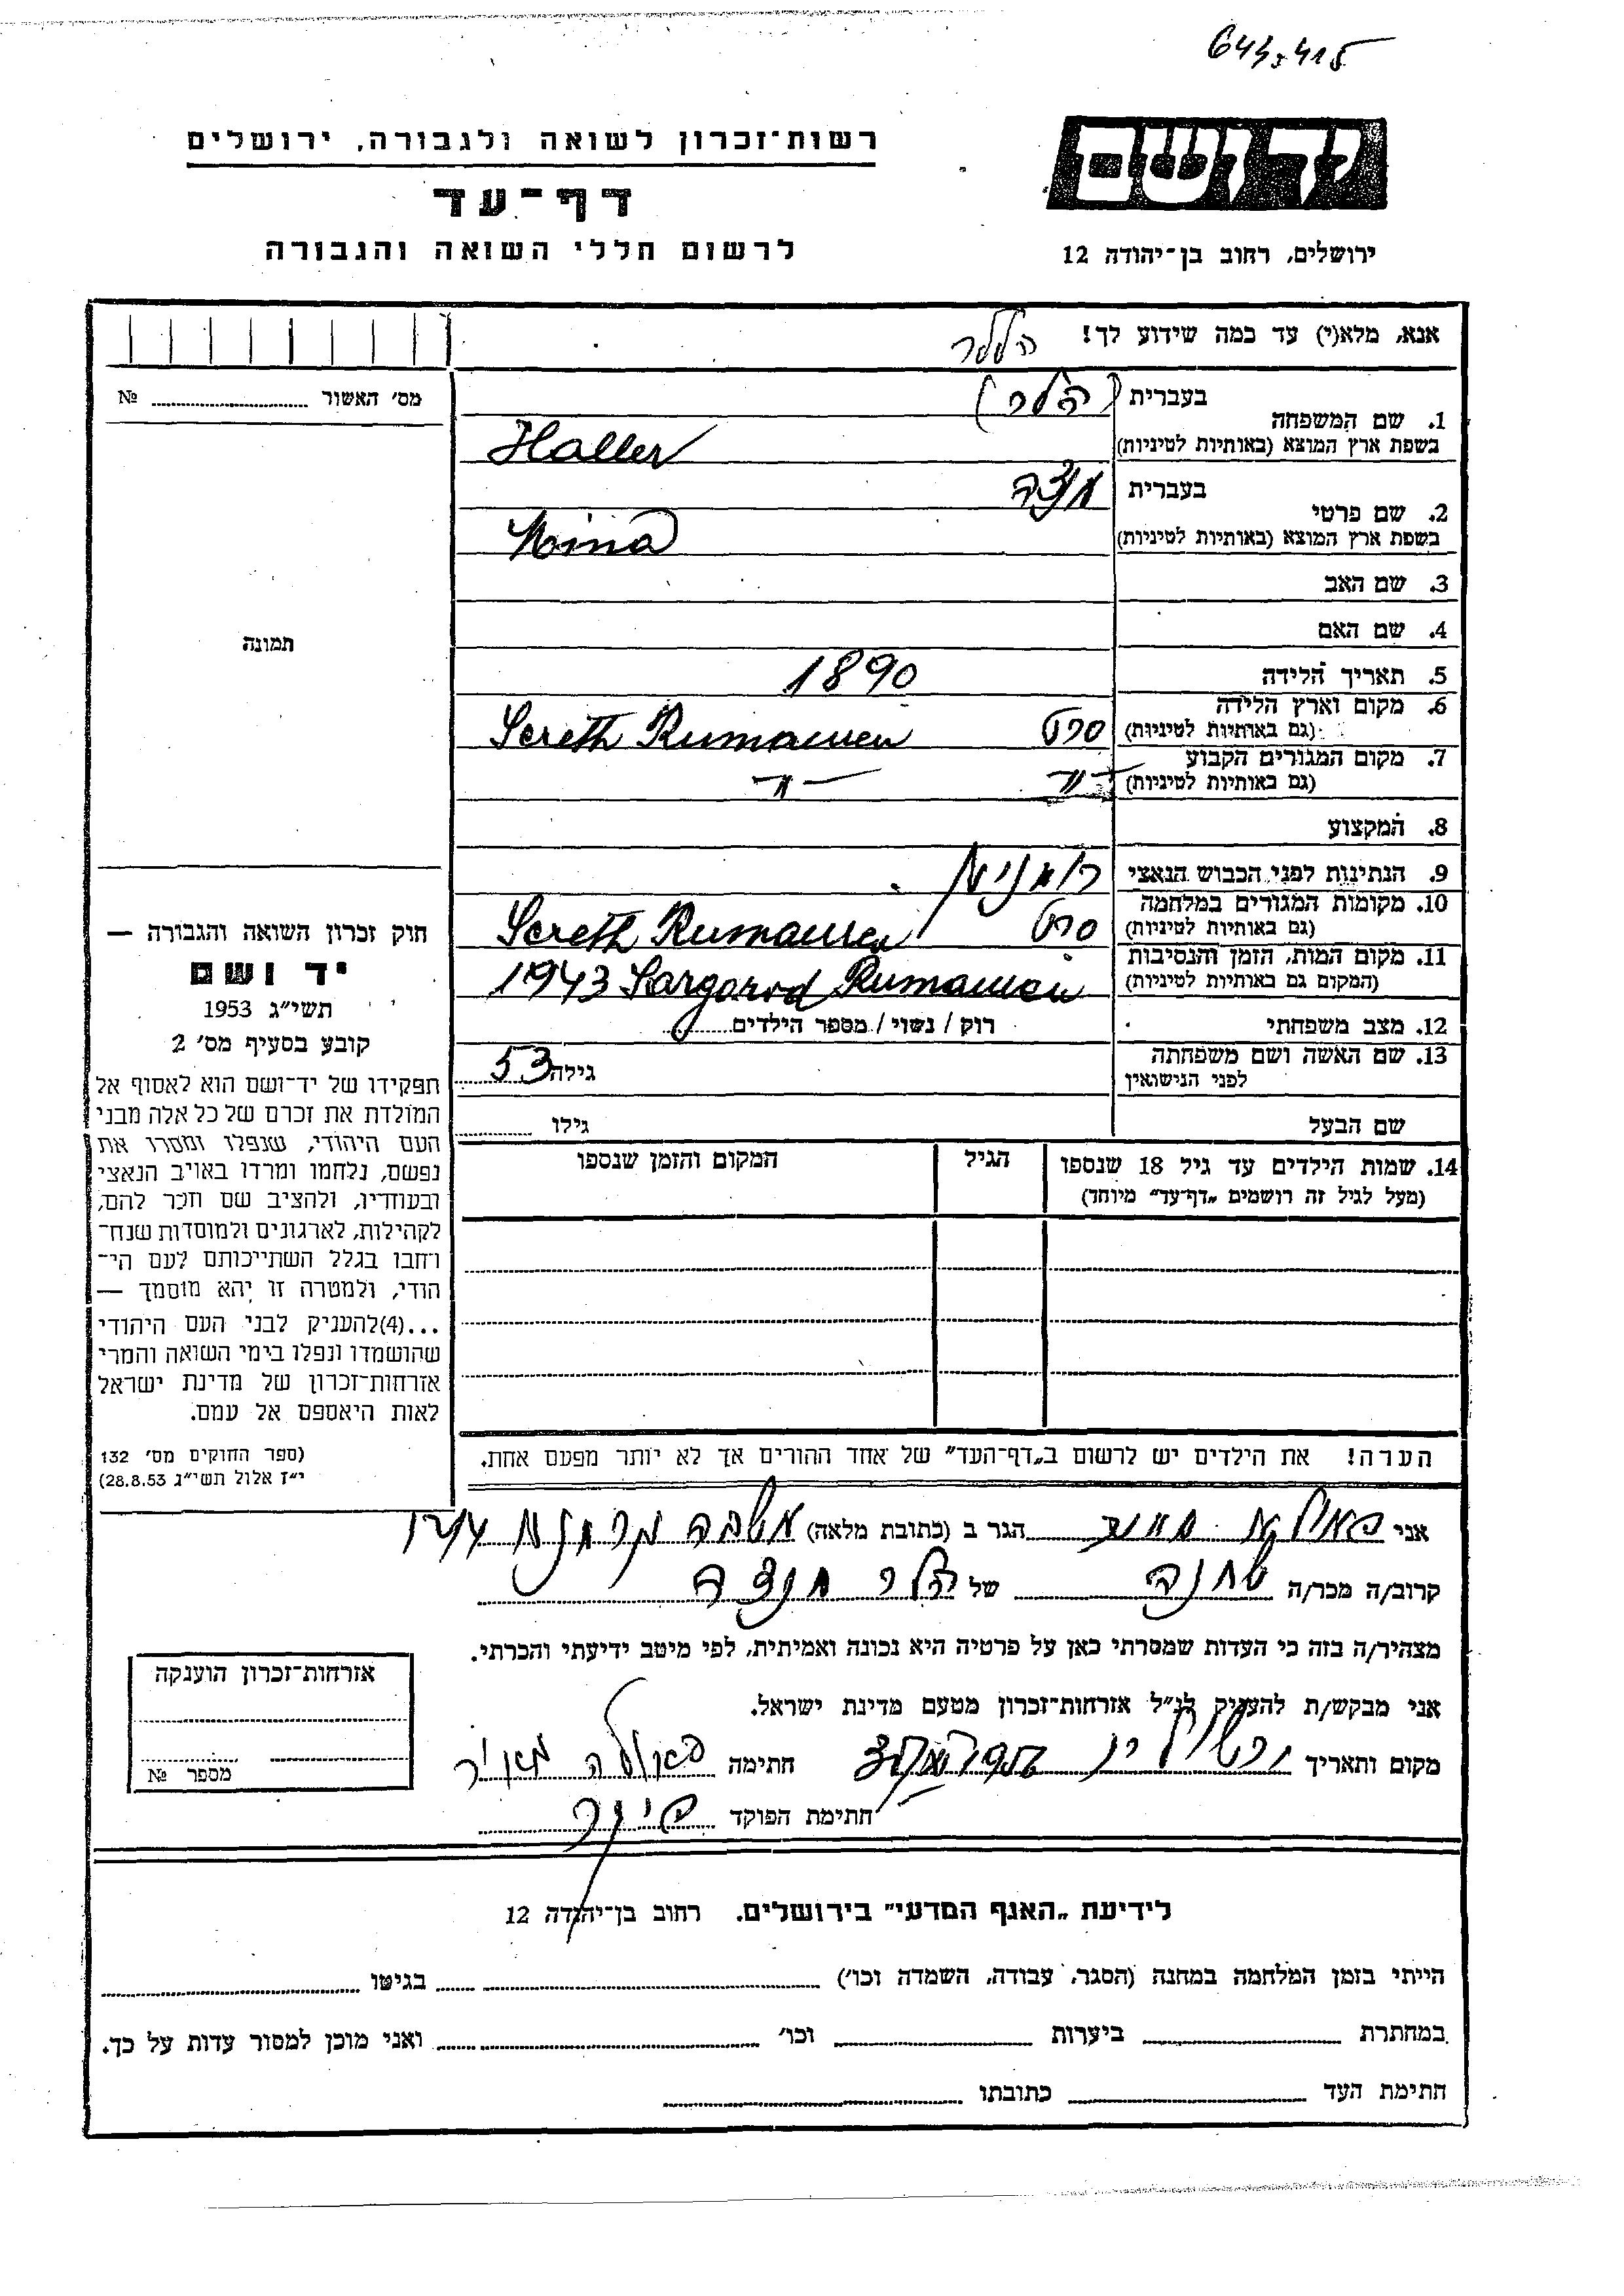 643.415
רשות־זכרון לשואה ולגבורה, ירושלים
דף־עד
לרשום חללי השואה והגבורה
יד ושם
ירושלים, רחוב בן־יהודה 12
אנא, מלא(י) עד כמה שידוע לך!
הללר
מס׳ האשור № 
תמונה
1. שם המשפחה
בעברית (הלר)
בשפת ארץ המוצא (באותיות לטיניות) Haller
2. שם פרטי
בעברית
בשפת ארץ המוצא (באותיות לטיניות)
3. שם האב
4. שם האם
5. תאריך הלידה 1890
6. מקום וארץ הלידה
(גם באותיות לטיניות) סרט Sereth Rumanien
7. מקום המגורים הקבוע
(גם באותיות לטיניות) -"- -"-
8. המקצוע
9. הנתינות לפני הכבוש הנאצי
10. מקומות המגורים במלחמה
(גם באותיות לטיניות) סרט Sereth Rumanien
11. מקום המות, הזמן והנסיבות
(המקום גם באותיות לטיניות) 1943 Sargorod Rumanien
12. מצב משפחתי רוק / נשוי / מספר הילדים
13. שם האשה ושם משפחתה
לפני הנישואין גילה 53
שם הבעל גילו
14. שמות הילדים עד גיל 18 שנספו הגיל המקום והזמן שנספו
(מעל לגיל זה רושמים „דף־עד״ מיוחד)
הערה! את הילדים יש לרשום ב„דף־העד״ של אחד ההורים אך לא יותר מפעם אחת.
חוק זכרון השואה והגבורה —
יד ושם
תשי״ג 1953
קובע בסעיף מס׳ 2
תפקידו של יד־ושם הוא לאסוף אל
המולדת את זכרם של כל אלה מבני
העם היהודי, שנפלו ומסרו את
נפשם, נלחמו ומרדו באויב הנאצי
ובעוזריו, ולהציב שם וזכר להם,
לקהילות, לארגונים ולמוסדות שנח־
רבו בגלל השתייכותם לעם הי־
הודי, ולמטרה זו יהא מוסמך —
...(4)להעניק לבני העם היהודי
שהושמדו ונפלו בימי השואה והמרי
אזרחות־זכרון של מדינת ישראל
לאות היאספם אל עמם.
(ספר החוקים מס׳ 132
י״ז אלול תשי״ג 28.8.53)
אני הגר ב (כתובת מלאה)
קרוב/ה מכר/ה שכנה של הלר
מצהיר/ה בזה כי העדות שמסרתי כאן על פרטיה היא נכונה ואמיתית, לפי מיטב ידיעתי והכרתי.
אני מבקש/ת להעניק לנ״ל אזרחות־זכרון מטעם מדינת ישראל.
מקום ותאריך חתימה
חתימת הפוקד
אזרחות־זכרון הוענקה
מספר №
לידיעת „האגף המדעי״ בירושלים. רחוב בן־יהודה 12
הייתי בזמן המלחמה במחנה (הסגר, עבודה, השמדה וכו׳) בגיטו
במחתרת ביערות וכו׳ ואני מוכן למסור עדות על כך.
חתימת העד כתובתו